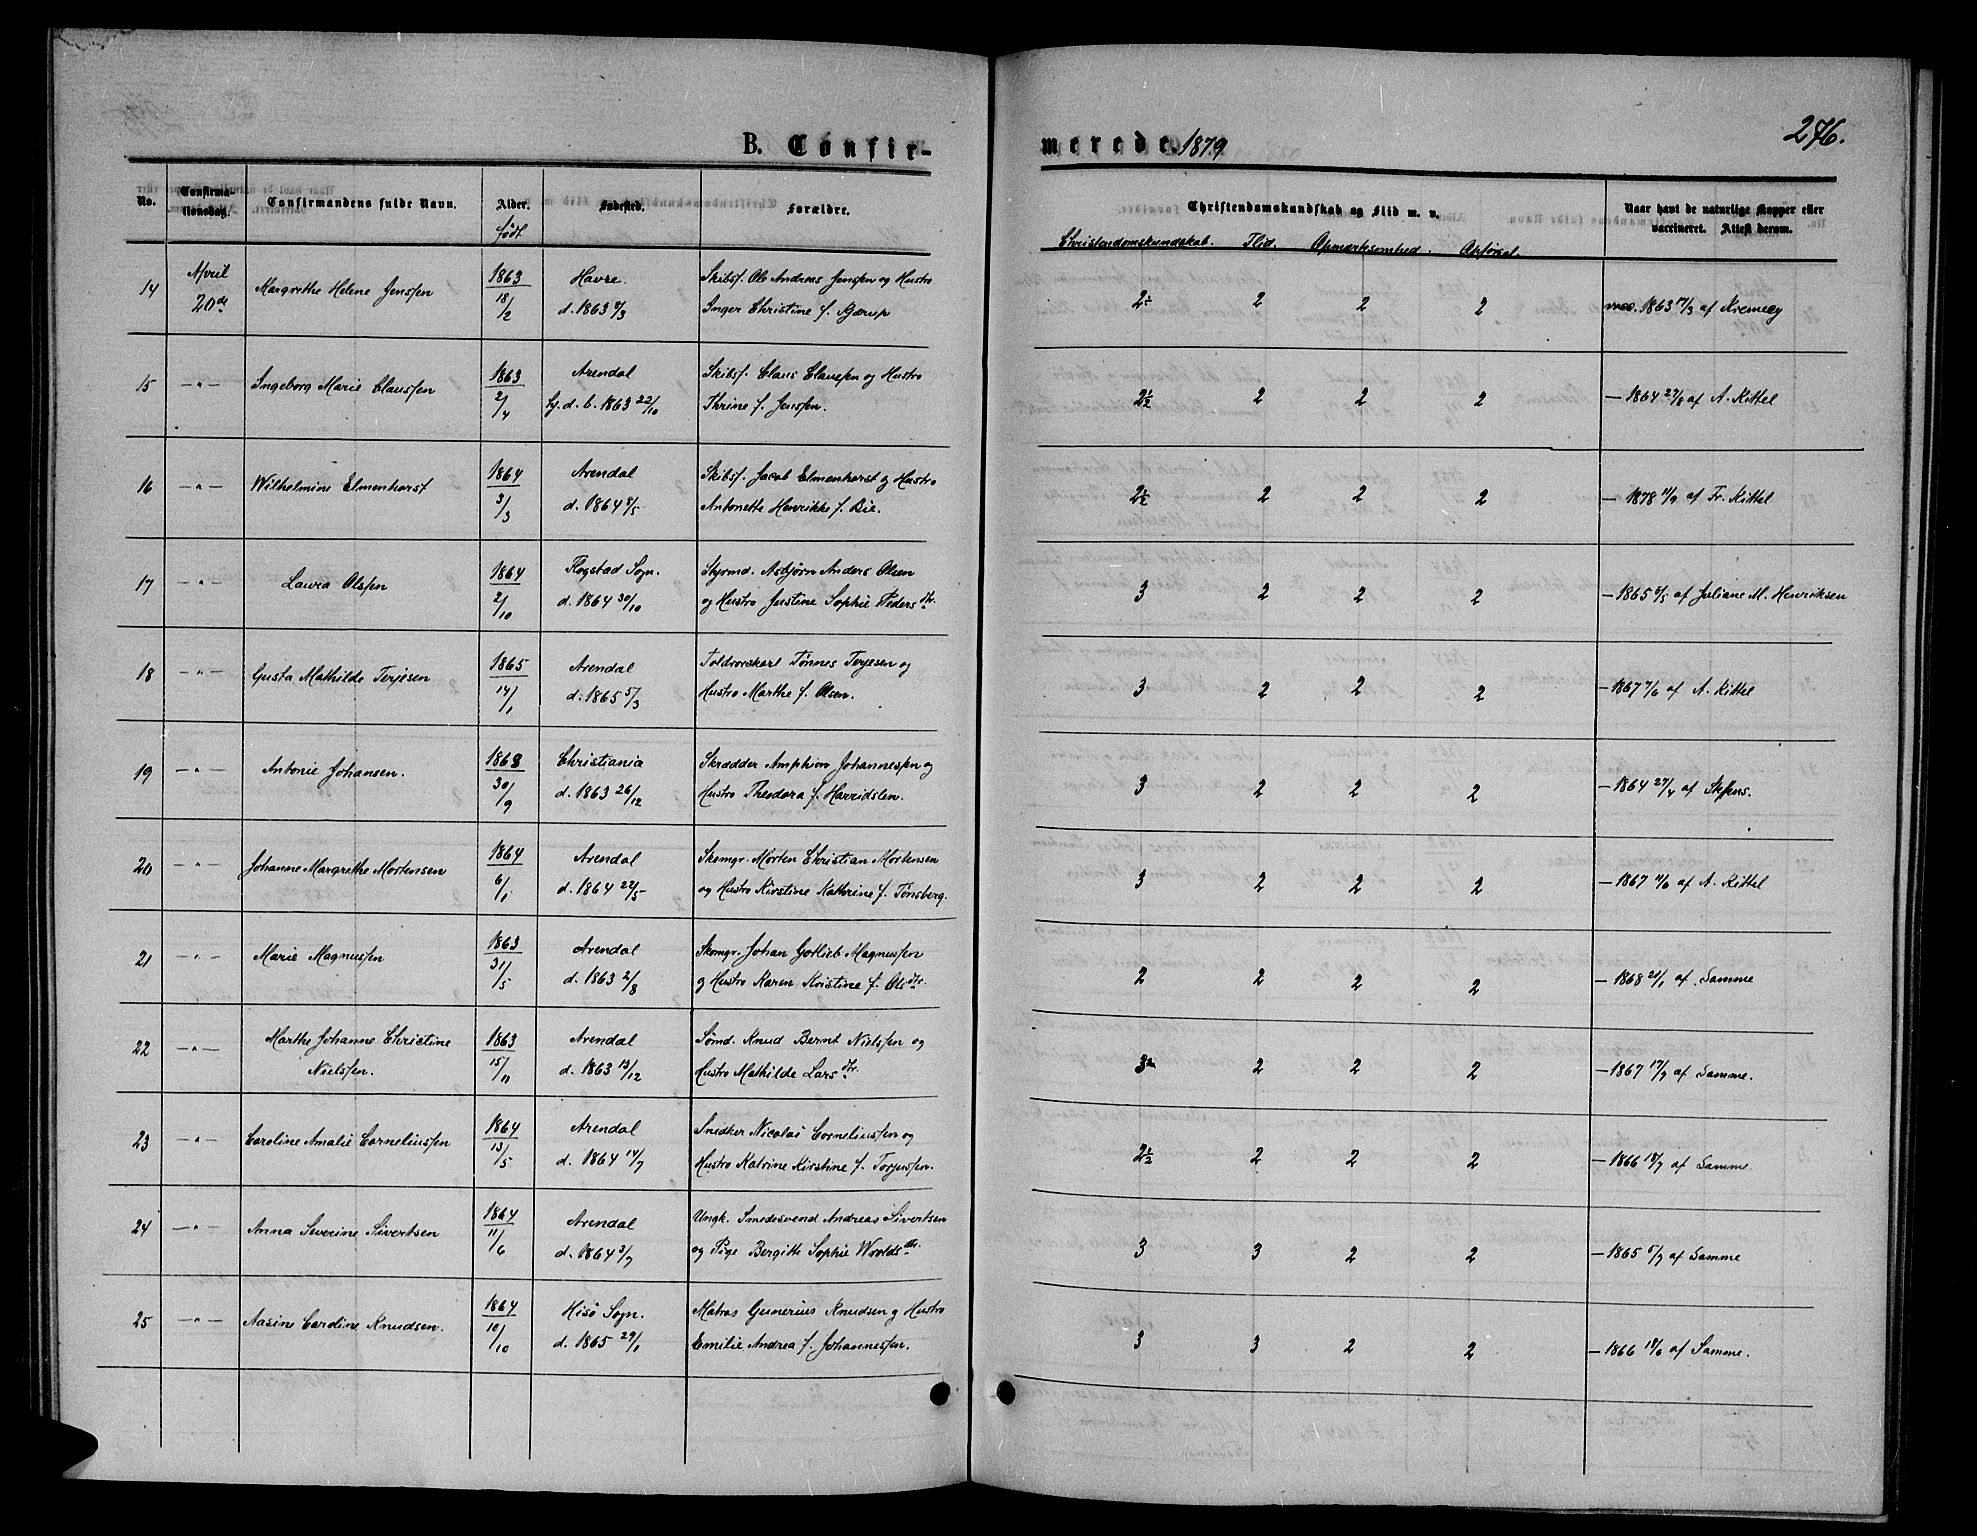 B. Confirmerede. 1879 276.
No. Confirmationsdag. Confirmandens fulde Navn. Alder. født Fødested. Forældre. Christendomskundskab og Flid m. v. Naar havt de naturlige Kopper eller vaccineret. Attest derom.
Christendomskundskab. Flid. Opmærksomhed. Opførsel.
14 April 20de Margrethe Helene Jenssen 1863 18/2 Havre. d. 1863 8/3 Skibsf. Ole Andreas Jenssen og Hustro
Inger Christine f. Kjærup 2½ 2 2 2 vacc. 1863 17/3 af
15 —"— Ingeborg Marie Claussen 1863 2/4 Arendal hj. d. b. 1863 22/10 Skibsf. Claus Claussen og Hustro
Thrine f. Jenssen. 2½ 2 2 2 — 1864 27/8 af A. Kittel
16 —"— Wilhelmine Elmenhorst 1864 3/3 Arendal d. 1864 8/5 Skibsf. Jacob Elmenhorst og Hustro
Antonette Henrikke f. Bie. 2½ 2 2 2 — 1878 11/9 af Fr. Kittel
17 —"— Laura Olssen 1864 2/10 Flogstad Sogn. d. 1864 30/10 Styrmd. Asbjørn Anders Olsen
og Hustro Justine Sophie Pedersdtr. 3 2 2 2 — 1865 6/5 af Juliane M. Henriksen
18 —"— Gusta Mathilde Terjesen 1865 14/1 Arendal d. 1865 5/3 Toldrorskarl Tønnes Terjesen og
Hustro Marthe f. Olsen. 3 2 2 2 — 1867 7/6 af A. Kittel
19 —"— Antonie Johansen. 1863 30/9 Christiania d. 1863 26/12 Skrædder Amphion Johannessen og
Hustro Theodora f. Harridslen. 3 2 2 2 — 1864 27/4 af Steffens.
20 —"— Johanne Margrethe Mortensen 1864 6/1 Arendal d. 1864 22/5 Skomgr. Morten Christian Mortensen
og Hustro Kirstine Kathrine f. Tønsberg. 3 2 2 2 — 1867 11/6 af A. Kittel
21 —"— Marie Magnussen 1863 31/5 Arendal d. 1863 2/8 Skomgr. Johan Gotlieb Magnussen
og Hustro Karen Kristine f. Olsdtr. 2 2 2 2 — 1868 21/1 af Samme
22 —"— Marthe Johanne Christine
Nielssen. 1863 15/11 Arendal d. 1863 13/12 Sømd. Knud Bernt Nielssen og
Hustro Mathilde Larsdtr. 3 2 2 2 — 1867 17/7 af Samme.
23 —"— Caroline Amalie Corneliussen 1864 13/5 Arendal d. 1864 14/7 Snedker Nicolai Corneliussen og
Hustro Katrine Kirstine f. Torjussen. 2½ 2 2 2 — 1866 18/7 af Samme
24 —"— Anna Severine Sivertsen 1864 11/6 Arendal d. 1864 3/7 Ungk. Smedesvend Andreas Sivertsen
og Pige Bergitte Sophie Wroldsdtr. 3 3 2 2 — 1865 6/7 af Samme
25 —"— Aasine Caroline Knudsen. 1864 10/10 Hisø Sogn. d. 1865 29/1 Matros Gunerius Knudsen og Hustro
Emilie Andrea f. Johannessen. 3 3 2 2 — 1866 18/6 af Samme.